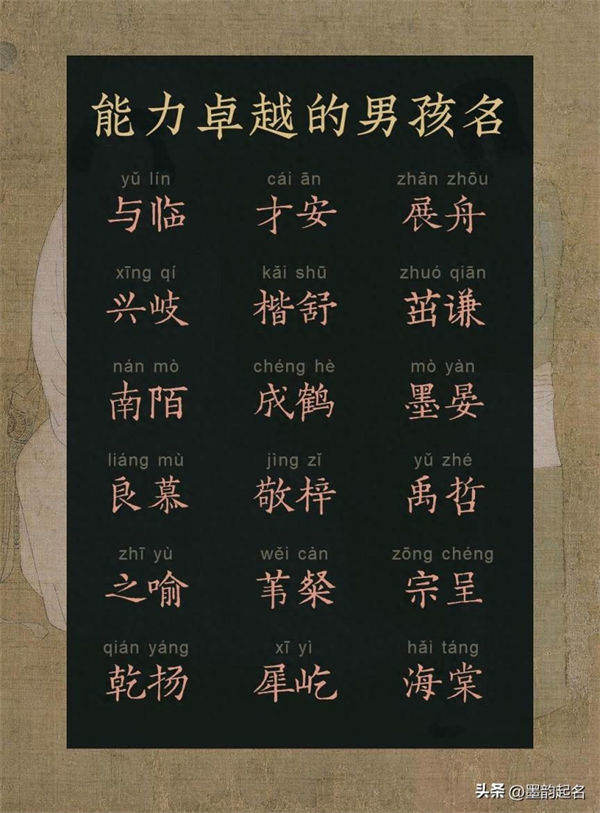 能力卓越的男孩名
yǔ lín cái ān zhǎn zhōu
与临 才安 展舟
xīng qí kǎi shū zhuó qiān
兴岐 楷舒 茁谦
nán mò chéng hè mò yàn
南陌 成鹤 墨晏
liáng mù jìng zǐ yǔ zhé
良慕 敬梓 禹哲
zhī yù wěi càn zōng chéng
之喻 苇粲 宗呈
qián yáng xī yì hǎi táng
乾扬 犀屹 海棠
头条 @墨韵起名